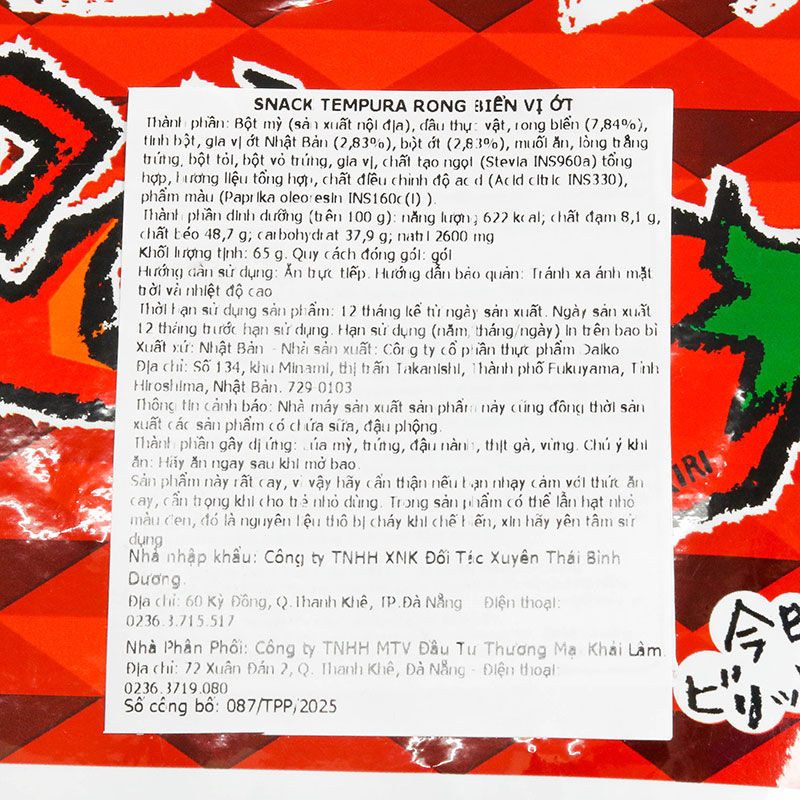 SNACK TEMPURA RONG BIỂN VỊ ỚT
Thành phần: Bột mỳ (sản xuất nội địa), dầu thực vật, rong biển (7,84%),
tinh bột, gia vị ớt Nhật Bản (2,83%), bột ớt (2,83%), muối ăn, lòng trắng
trứng, bột tỏi, bột vỏ trứng, gia vị, chất tạo ngọt (Stevia INS960a) tổng
hợp, hương liệu tổng hợp, chất điều chỉnh độ acid (Acid citric INS330),
phẩm màu (Paprika oleoresin INS160c(i) ).
Thành phần dinh dưỡng (trên 100 g): năng lượng 622 kcal; chất đạm 8,1 g,
chất béo 48,7 g; carbohydrat 37,9 g; natri 2600 mg
Khối lượng tịnh: 65 g. Quy cách đóng gói: gói
Hướng dẫn sử dụng: Ăn trực tiếp. Hướng dẫn bảo quản: Tránh xa ánh mặt
trời và nhiệt độ cao
Thời hạn sử dụng sản phẩm: 12 tháng kể từ ngày sản xuất. Ngày sản xuất
12 tháng trước hạn sử dụng. Hạn sử dụng (năm/tháng/ngày) in trên bao bì
Xuất xứ: Nhật Bản - Nhà sản xuất: Công ty cổ phần thực phẩm Daiko
Địa chỉ: Số 134, khu Minami, thị trấn Takanishi, Thành phố Fukuyama, Tỉnh
Hiroshima, Nhật Bản. 729-0103
Thông tin cảnh báo: Nhà máy sản xuất sản phẩm này cũng đồng thời sản
xuất các sản phẩm có chứa sữa, đậu phộng.
Thành phần gây dị ứng: Lúa mỳ, trứng, đậu nành, thịt gà, vừng. Chú ý khi
ăn: Hãy ăn ngay sau khi mở bao.
Sản phẩm này rất cay, vì vậy hãy cẩn thận nếu bạn nhạy cảm với thức ăn
cay, cẩn trọng khi cho trẻ nhỏ dùng. Trong sản phẩm có thể lẫn hạt nhỏ
màu đen, đó là nguyên liệu thô bị cháy khi chế biến, xin hãy yên tâm sử
dụng
Nhà nhập khẩu: Công ty TNHH XNK Đối Tác Xuyên Thái Bình
Dương.
Địa chỉ: 60 Kỳ Đồng, Q.Thanh Khê, TP.Đà Nẵng Điện thoại:
0236.3.715.517
Nhà Phân Phối: Công ty TNHH MTV Đầu Tư Thương Mại Khải Lâm.
Địa chỉ: 72 Xuân Đán 2, Q. Thanh Khê, Đà Nẵng - Điện thoại:
0236.3719.080
Số công bố: 087/TPP/2025
KIRI
今日
ビリッ